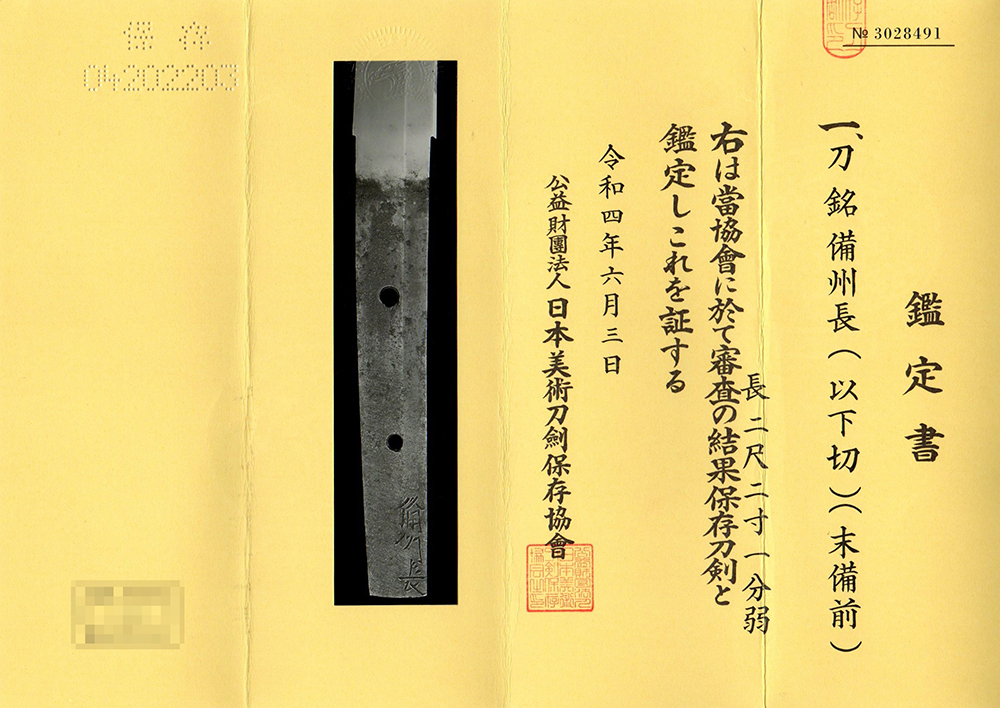 № 3028491
鑑定書
一、刀 銘 備州長(以下切)(末備前)
長二尺二寸一分弱
右は當協會に於て審査の結果保存刀剣と
鑑定しこれを証する
令和四年六月三日
公益財團法人 日本美術刀劍保存協會
備州長
保存
04202203